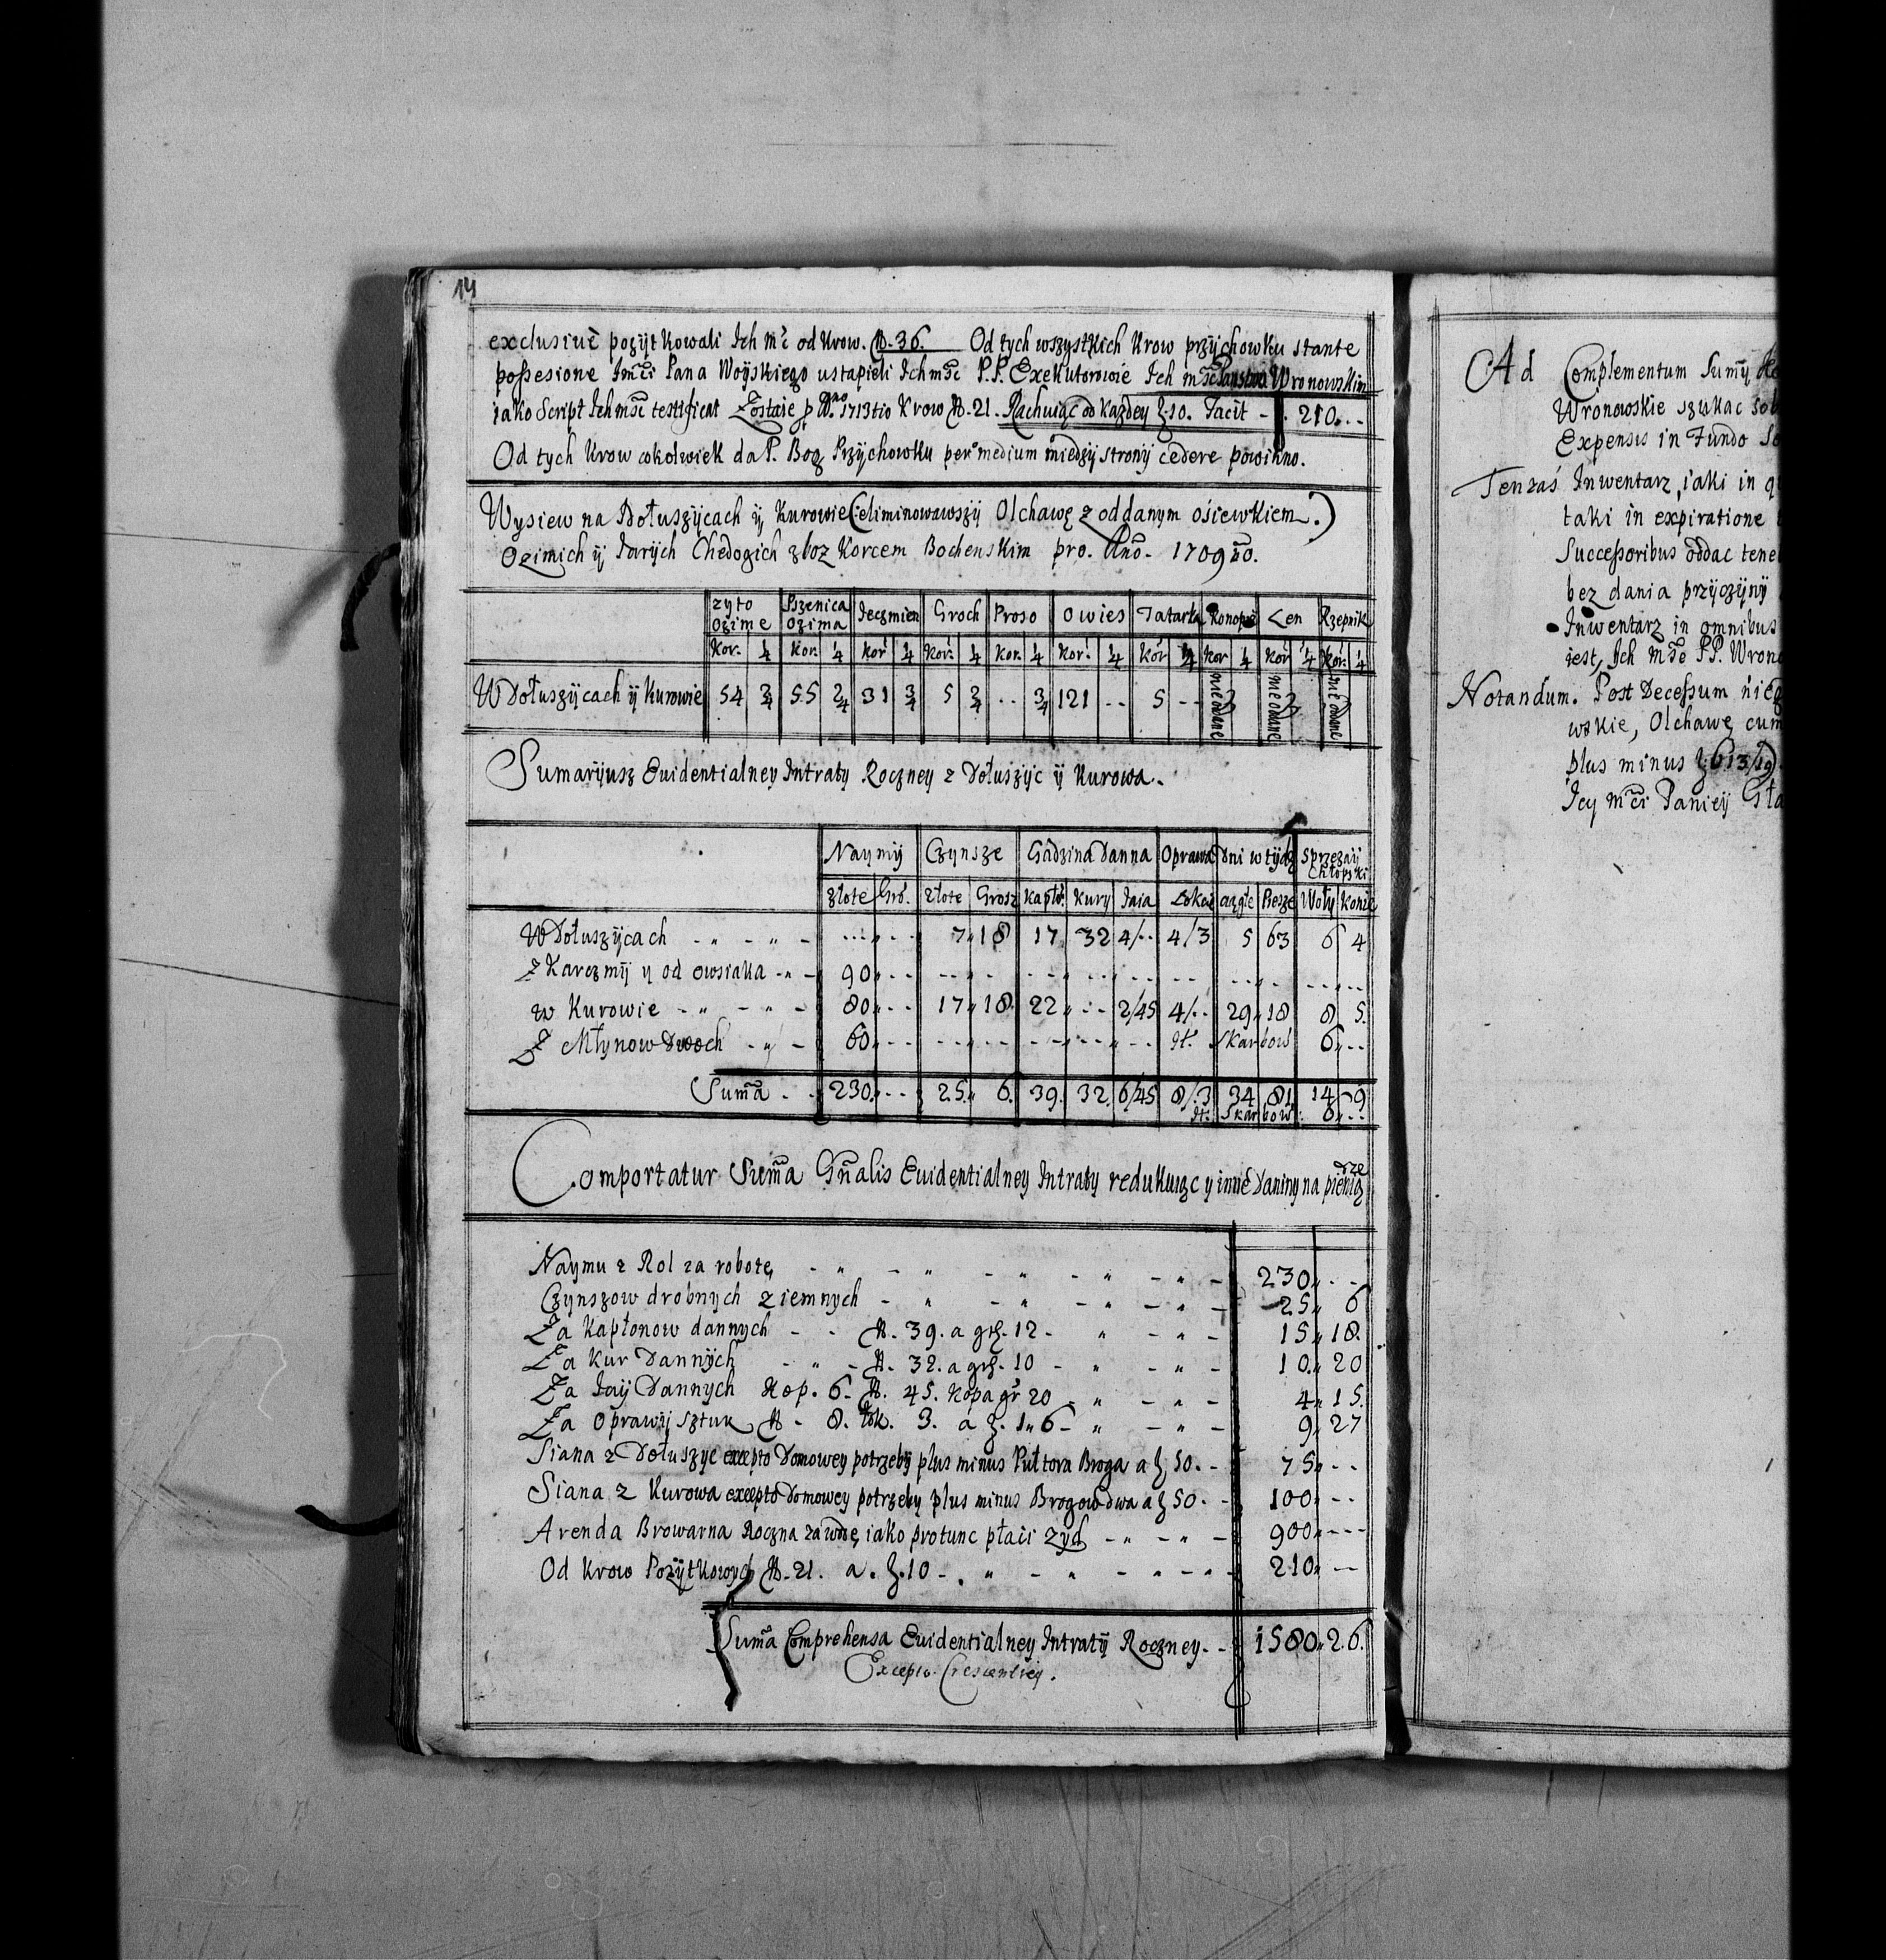 14
exclusivè pozijtkowali Ich Mć od Krow. N. 36. Od tych wszystkich Krow przijchowku stante
possesione Imći Pana Woijskiego ustąpieli Ichmść P.P. Exekutorowie Ich mść Panstwu Wronowskim
iako Script Ichmść testificat Zostaie p Ano 1713tio Krow N. 21. Rachuiąc od Każdey Z. 10. Facit - 210...
Od tych Krow cokolwiek da P. Bog Przijchowku per medium międzij stronij cedere powinno.
Wysiew na Dołuszijcach ij Kurowie (: eliminowawszij Olchawę z oddanym ośiewkiem. )
Ozimich ij Iarijch Chędogich zboz Korcem Bochenskim pro. Ano. 1709no.
zyto ozime Pszenica ozima Ięczmien Groch Proso Owies Tatarka Konopie Len Rzepnik
Kor. 1/4 Kor. 1/4 Kor 1/4 Kor. 1/4 Kor. 1/4 Kor. 1/4 Kor 1/4 Kor 1/4 Kor 1/4 Kor. 1/4
W Dołuszijcach ij Kurowie 54 3/4 55 2/4 31 3/4 5 2/4 .. 3/4 121 .. 5 -- nie oddane nie oddane nie oddane
Sumarijusz Euidentialney Intraty Roczney z Dołuszijc ij Kurowa.
Naymij Czynsze Gadzina Danna Oprawa Dni w tijdz Sprzęzaij Chłopski
złote Gro. Złote Grosz Kapło. Kury Iaia Łokci ciągłe Piesze Woły Konie
W Dołuszijcach - " - " - ... .. 7" 18 17 32 4/.. 4/3 5 63 6 4
Z Karczmij y od owsiaka - " - 90" .. -- .. .. .. .. .. .. .. .. ..
w Kurowie - " - " - 80" .. 17" 18. 22" .. 2/45 4/.. 29" 18 8 5.
Z Młynow Dwoch - " - 60" .. -- .. .. .. .. It. Skarbow 6" ..
Suma . . 230" .. 25" 6. 39. 32. 6/45 8/.3 34 81 14 9
It. Skarbow: 6" ..
Comportatur Suma Gnalis Euidentialney Intraty redukuiąc y inne Daniny na pieniądze
Naymu z Rol za robotę - " - " - " - " - " - 230" . -
Czynszow drobnych ziemnych - " - " - " - " - 25" 6
Za Kapłonow dannych - - N. 39. a grż. 12 - " - " - 15" 18.
Za Kur Dannijch - " - N. 32. a grż. 10 - " - " - 10" 20
Za Iaij Dannych Kop. 6. N. 45. Kopa gr 20 - " - " - 4" 15.
Za Oprawij sztuk N - 8. Łok. 3. á Z. 1" 6 - " - " - 9" 27
Siana z Dołuszyc excepto Domowey potrzebij plus minus Pułtora Broga a Z 50. - 75" - -
Siana z Kurowa excepto Domowey potrzeby plus minus Brogow dwa a Z 50. - 100" - -
Arenda Browarna Roczna zawdzę, iako protunc płaci zyd - " - " - 900" - - -
Od Krow Pozijtkowych N. 21. a. Z. 10 - . " - " - " - " - 210" --
Suma Comprehensa Euidentialney Intratij Roczney. - - 1580" 26.
Excepto Crescentiey.
Ad Complementum Sumij
Wronowskie szukac
Expensis in Fundo
Tenzaś Inwentarz, iaki in
taki in expiratione
Successoribus oddac
bez dania przijczijnij
Inwentarz in omnibus
iest, Ich Mśc PP.
Notandum. Post Decessum
wskie, Olchawę
plus minus Z. 613/19.
Iey Mći Paniey